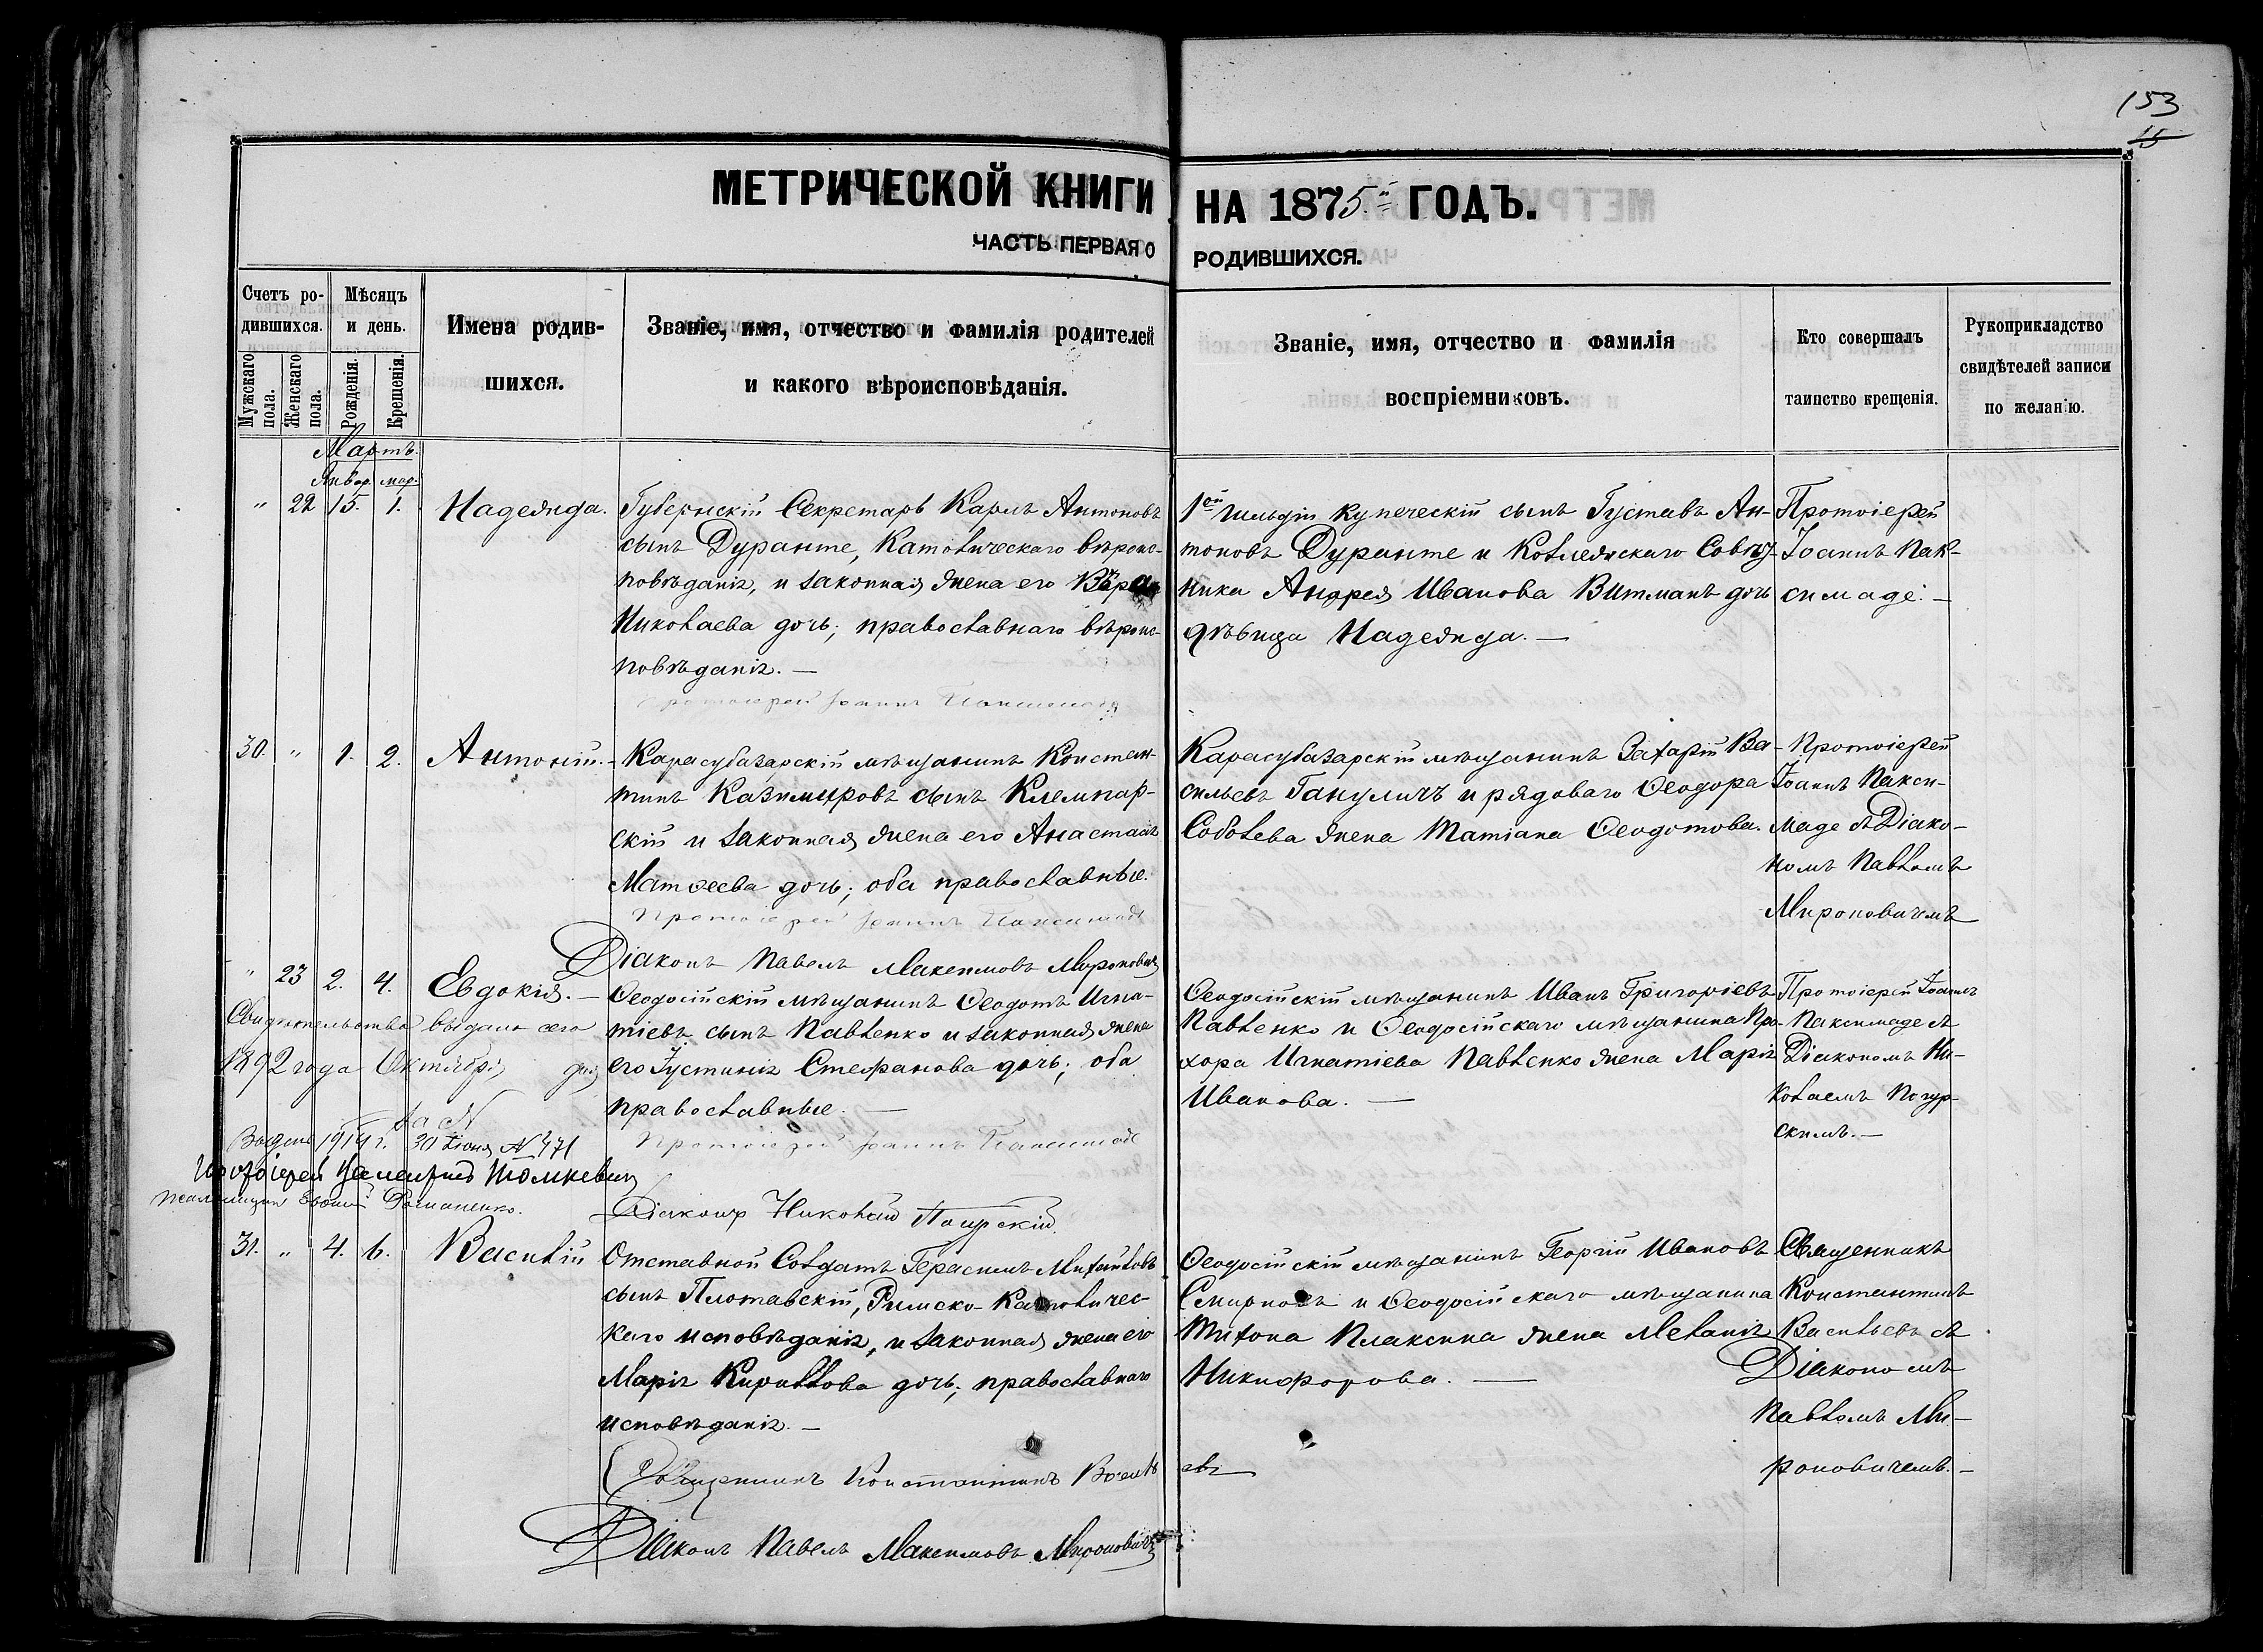 153
15
МЕТРИЧЕСКОЙ КНИГИ НА 1875й ГОДЪ.
ЧАСТЬ ПЕРВАЯ О РОДИВШИХСЯ.
Счетъ ро-
дившихся.
Мужскаго пола.
Женскаго пола.
Мѣсяцъ
и день.
Рожденія.
Крещенія.
Имена родив-
шихся.
Званіе, имя, отчество и фамилія родителей
и какого вѣроисповѣданія.
Званіе, имя, отчество и фамилія
воспріемниковъ.
Кто совершалъ
таинство крещенія.
Рукоприкладство
свидѣтелей записи
по желанію.
Мартъ.
Январ. мар.
" 22 15. 1. Надежда.
Губернскій Секретарь Карлъ Антоновъ
сынъ Дуранте, Католическаго вѣроис-
повѣданія, и законная жена его Вѣра
Николаева дочь; православнаго вѣроис-
повѣданія. —
Протоіерей Іоаннъ Паксимаде
1ей гильдіи купеческій сынъ Густавъ Ан-
тоновъ Дуранте и Коллежскаго Совѣт-
ника Андрея Иванова Витманъ дочь
дѣвица Надежда. —
Протоіерей
Іоаннъ Пак-
симаде. —
30. " 1. 2. Антоній. —
Карасубазарскій мѣщанинъ Констан-
тинъ Казимировъ сынъ Клемпар-
скій и законная жена его Анастасія
Матѳеева дочь; оба православные.
Протоіерей Іоаннъ Паксимаде
Діаконъ Павелъ Максимовъ Мироновичъ
Карасубазарскій мѣщанинъ Захарій Ва-
сильевъ Гануличъ и рядоваго Ѳеодора
Соболева жена Татіана Ѳеодотова.
Протоіерей
Іоаннъ Пакси-
маде съ Діако-
номъ Павломъ
Мироновичемъ
" 23 2. 4. Евдокія. —
Свидѣтельство выдано сего
1892 года Октября дня
за №
Выдано 1914 г. 30 Іюня № 471
Протоіерей Томкевич
Романенко.
Ѳеодосійскій мѣщанинъ Ѳеодотъ Игна-
тіевъ сынъ Павленко и законная жена
его Іустинія Стефанова дочь; оба
православные. —
Протоіерей Іоаннъ Паксимаде
Діаконъ Николай Погурскій
Ѳеодосійскій мѣщанинъ Иванъ Григоріевъ
Павленко и Ѳеодосійскаго мѣщанина Про-
хора Игнатіева Павленко жена Марія
Иванова. —
Протоіерей Іоаннъ
Паксимаде съ
Діакономъ Ни-
колаемъ Погур-
скимъ. —
31. " 4. 6. Василій
Отставной Солдатъ Герасимъ Михайловъ
сынъ Плотавскій, Римско-Католичес-
каго исповѣданія, и законная жена его
Марія Кириллова дочь; православнаго
исповѣданія. —
Священникъ Константинъ Васильевъ
Діаконъ Павелъ Максимовъ Мироновичъ
Ѳеодосійскій мѣщанинъ Георгій Ивановъ
Смирновъ и Ѳеодосійскаго мѣщанина
Тихона Плаксина жена Меланія
Никифорова. —
Священникъ
Константинъ
Васильевъ съ
Діакономъ
Павломъ Ми-
роновичемъ. —